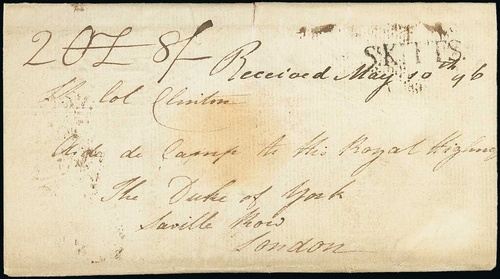 S:KITTS.
8/
Received May 10th 96
Col Clinton
Aide de Camp to His Royal Highness
The Duke of York
Saville Row
London